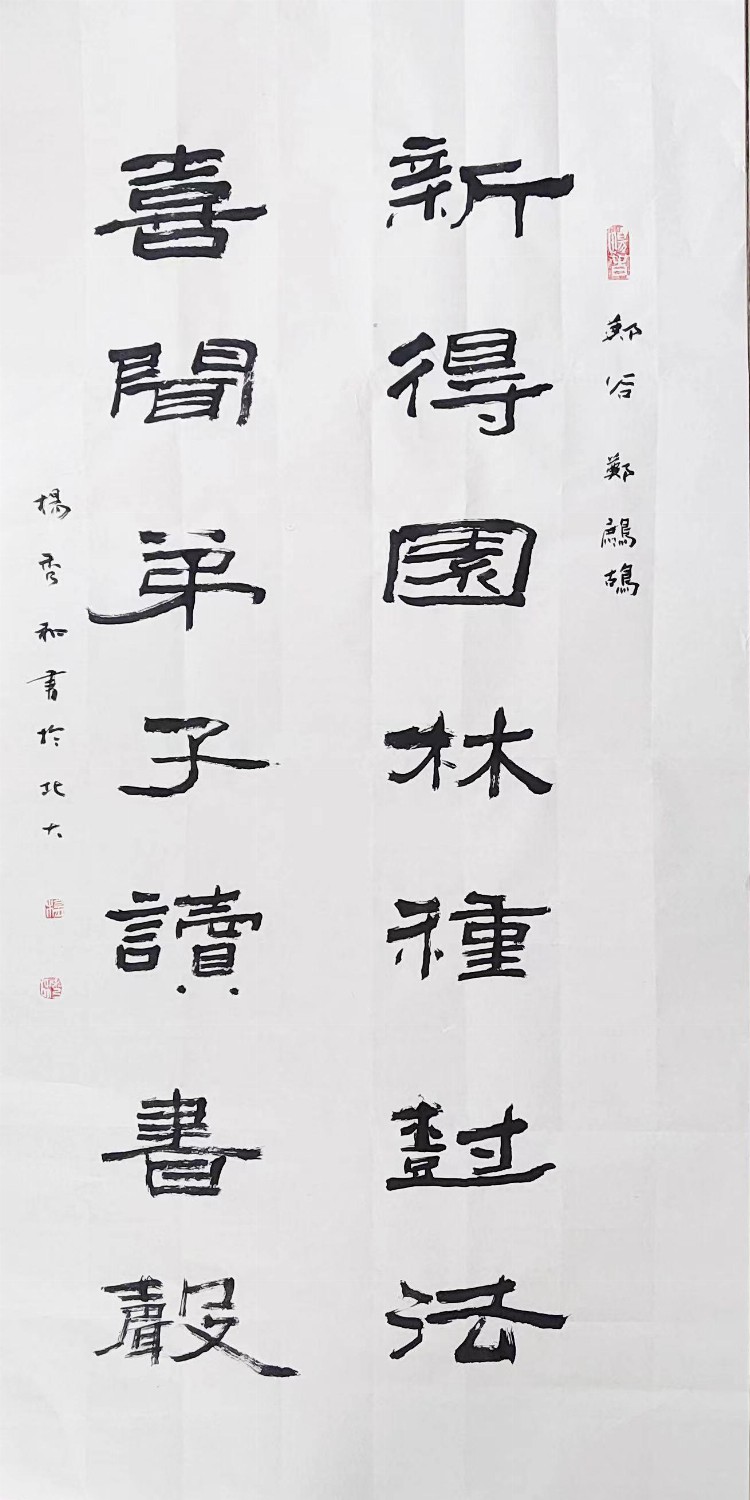 鄭谷鄭鷓鴣
新得園林種樹法
喜聞弟子讀書聲
楊秀和書於北大